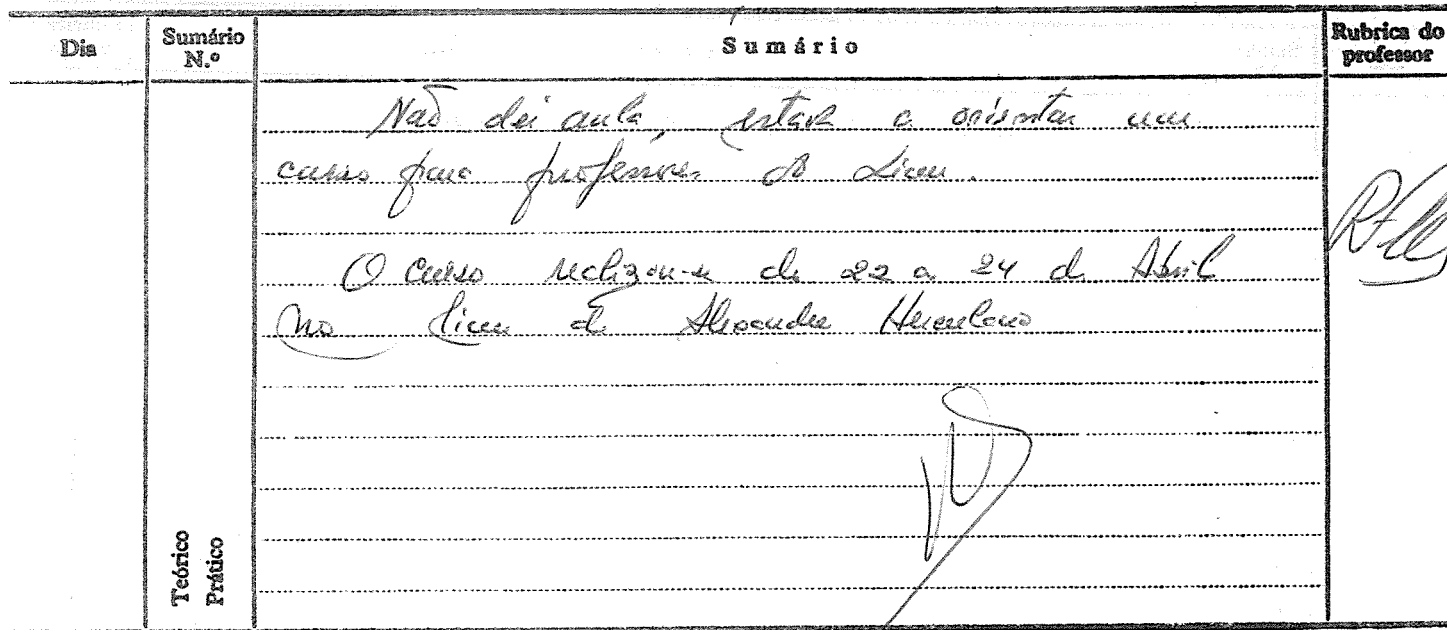 Dia
Sumário N.º
Sumário
Rubrica do professor
Não dei aula, estava a orientar um
curso para professores do Liceu.
O curso realizou-se de 22 a 24 de Abril
no Liceu de Alexandre Herculano
Teórico
Prático